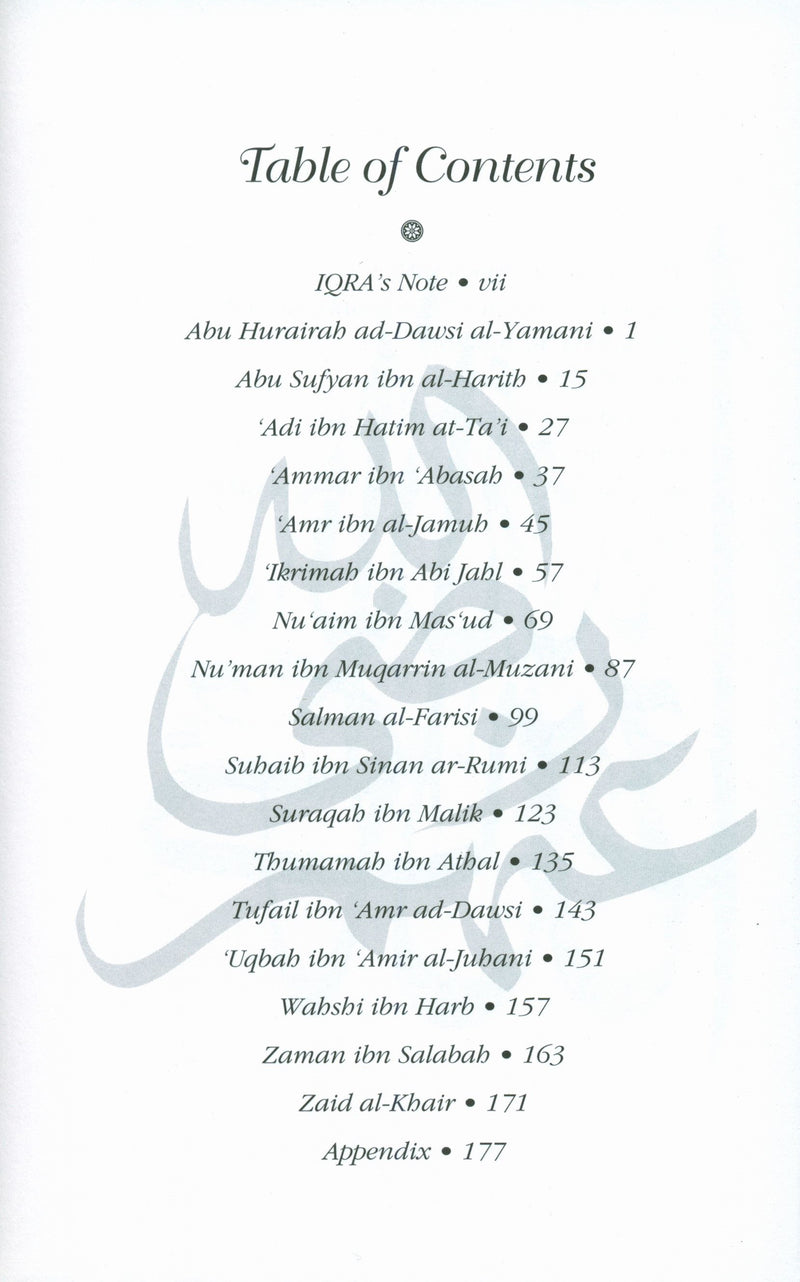 Table of Contents
IQRA's Note • vii
Abu Hurairah ad-Dawsi al-Yamani • 1
Abu Sufyan ibn al-Harith • 15
‘Adi ibn Hatim at-Ta’i • 27
‘Ammar ibn ‘Abasah • 37
‘Amr ibn al-Jamuh • 45
‘Ikrimah ibn Abi Jahl • 57
Nu‘aim ibn Mas‘ud • 69
Nu’man ibn Muqarrin al-Muzani • 87
Salman al-Farisi • 99
Suhaib ibn Sinan ar-Rumi • 113
Suraqah ibn Malik • 123
Thumamah ibn Athal • 135
Tufail ibn ‘Amr ad-Dawsi • 143
‘Uqbah ibn ‘Amir al-Juhani • 151
Wahshi ibn Harb • 157
Zaman ibn Salabah • 163
Zaid al-Khair • 171
Appendix • 177
رضي الله عنهم